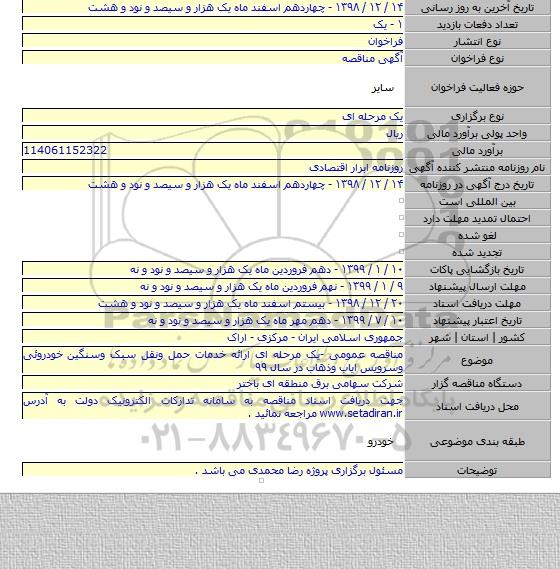 تاریخ آخرین به روز رسانی ۱۴ / ۱۲ / ۱۳۹۸ - چهاردهم اسفند ماه یک هزار و سیصد و نود و هشت
تعداد دفعات بازدید ۱ - یک
نوع انتشار فراخوان
نوع فراخوان آگهی مناقصه
حوزه فعالیت فراخوان سایر
نوع برگزاری یک مرحله ای
واحد پولی برآورد مالی ریال
برآورد مالی 114061152322
نام روزنامه منتشر کننده آگهی روزنامه ابرار اقتصادی
تاریخ درج آگهی در روزنامه ۱۴ / ۱۲ / ۱۳۹۸ - چهاردهم اسفند ماه یک هزار و سیصد و نود و هشت
بین المللی است
احتمال تمدید مهلت دارد
لغو شده
تجدید شده
تاریخ بازگشایی پاکات ۱۰ / ۱ / ۱۳۹۹ - دهم فروردین ماه یک هزار و سیصد و نود و نه
مهلت ارسال پیشنهاد ۹ / ۱ / ۱۳۹۹ - نهم فروردین ماه یک هزار و سیصد و نود و نه
مهلت دریافت اسناد ۲۰ / ۱۲ / ۱۳۹۸ - بیستم اسفند ماه یک هزار و سیصد و نود و هشت
تاریخ اعتبار پیشنهاد ۱۰ / ۷ / ۱۳۹۹ - دهم مهر ماه یک هزار و سیصد و نود و نه
کشور | استان | شهر جمهوری اسلامی ایران - مرکزی - اراک
موضوع مناقصه عمومی -یک مرحله ای ارائه خدمات حمل ونقل سبک وسنگین خودروئی
وسرویس ایاب وذهاب در سال ۹۹
دستگاه مناقصه گزار شرکت سهامی برق منطقه ای باختر
محل دریافت اسناد جهت دریافت اسناد مناقصه به سامانه تدارکات الکترونیک دولت به آدرس
www.setadiran.ir مراجعه نمائید .
طبقه بندی موضوعی خودرو
توضیحات مسئول برگزاری پروژه رضا محمدی می باشد .
۰۲۱-۸۸۳۴۹۶۷۰-۵